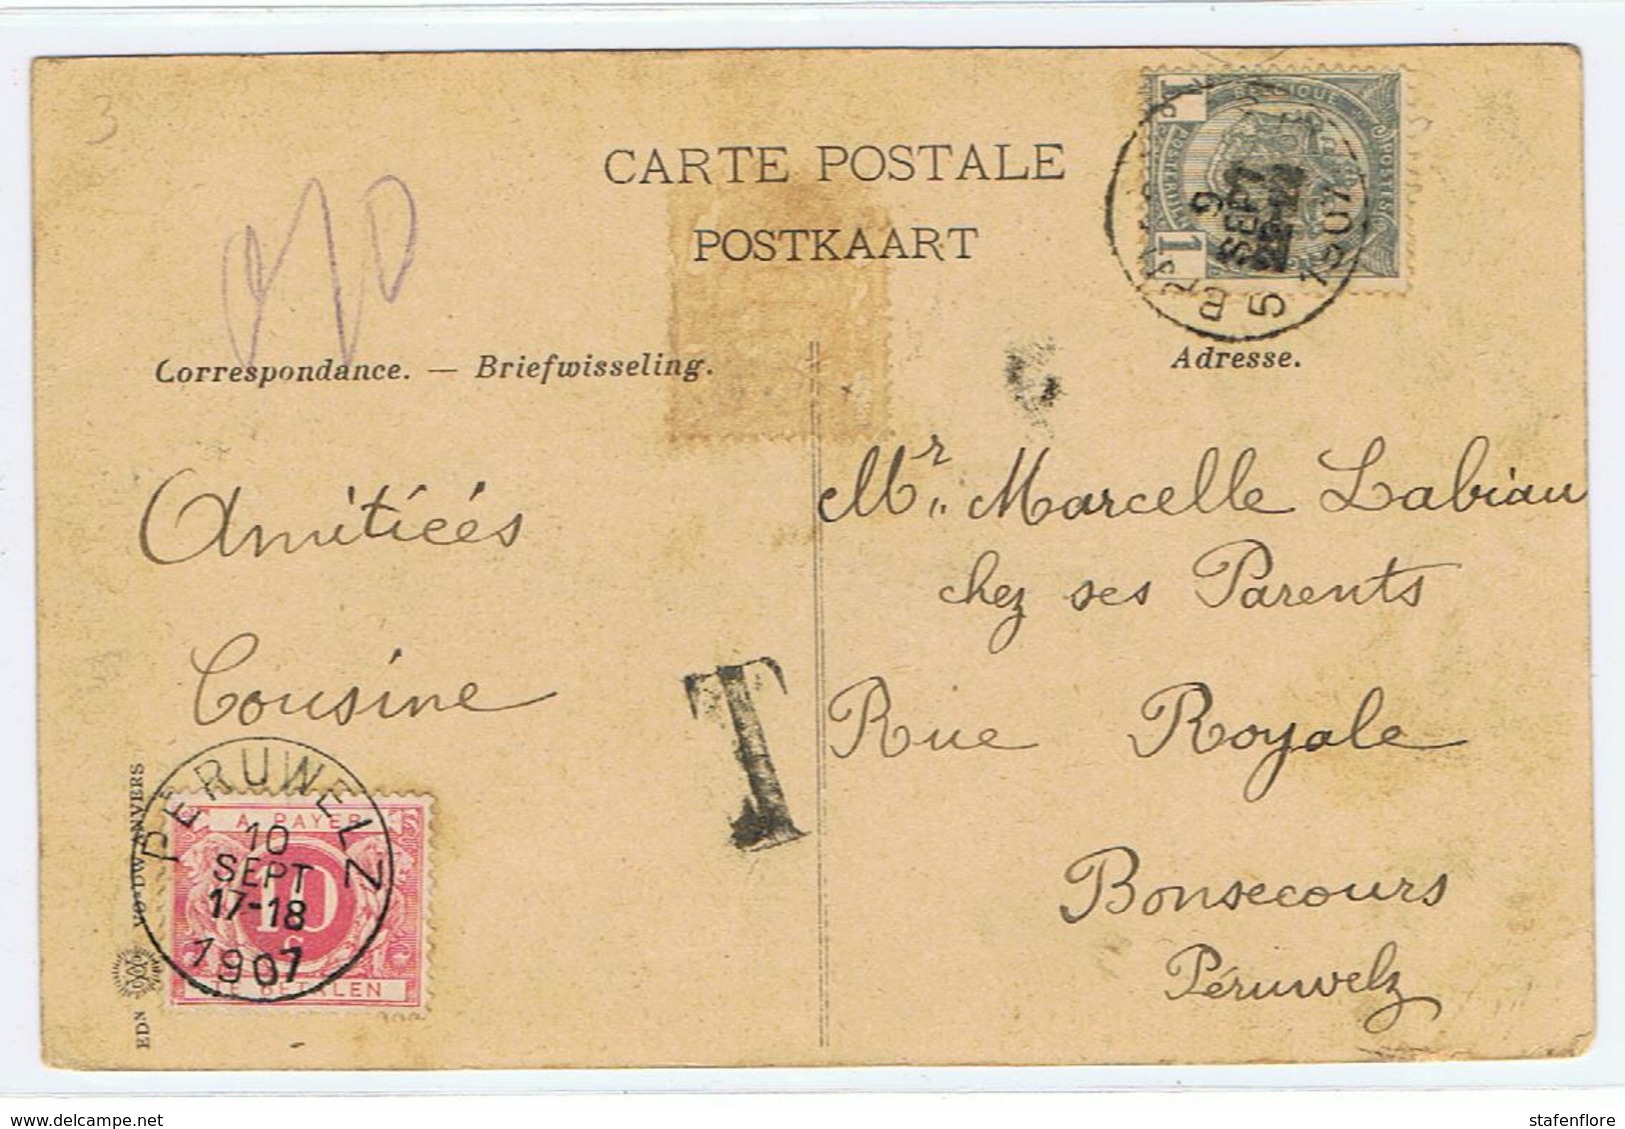 3
CARTE POSTALE
POSTKAART
BELGIQUE
POSTES
1
1
9
SEPT
5
1907
Correspondance. — Briefwisseling.
Adresse.
Amitiéés
Cousine
Mr. Marcelle Labiau
chez ses Parents
Rue Royale
Bonsecours
Péruwelz
T
PERUWELZ
10
SEPT
17-18
1907
A PAYER
10
TE BETALEN
EDN
ANVERS
www.delcampe.net
stafenflore